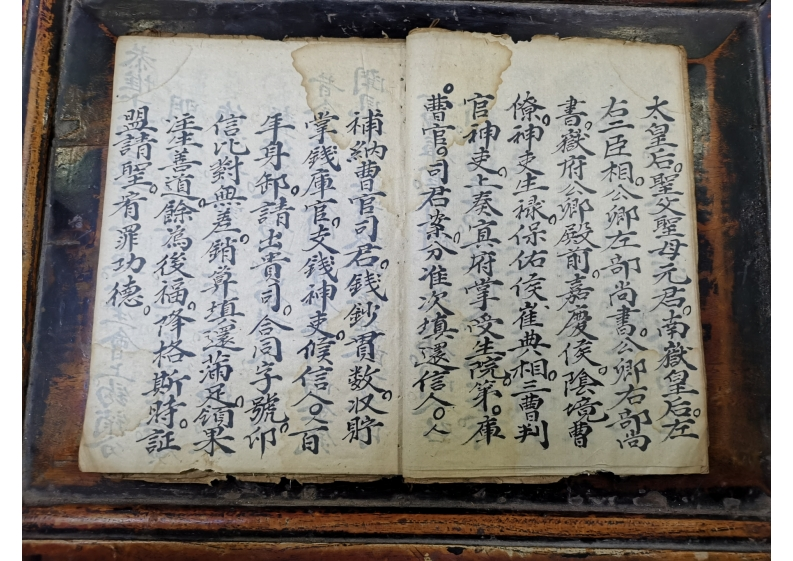 太皇后。聖父聖母元君。南嶽皇后。左
右二臣相。公卿左部尚書。公卿右部尚
書。嶽府公卿殿前。嘉慶侯。陰境曹
僚。神吏生祿保佑侯崔典相。三曹判
官神吏。上奏冥府掌受生院。第。庫
曹官。司君案分准次填還信人。人
補納曹官司君。錢鈔貫数。收貯
掌錢庫官。支錢神吏。候信人。百
年身卸。請出貴司。合同字號。卬
信比對無差。銷算填還滿足。領果
淫生善道。餘為後福。降格斯時。証
盟請聖。宥罪功德。